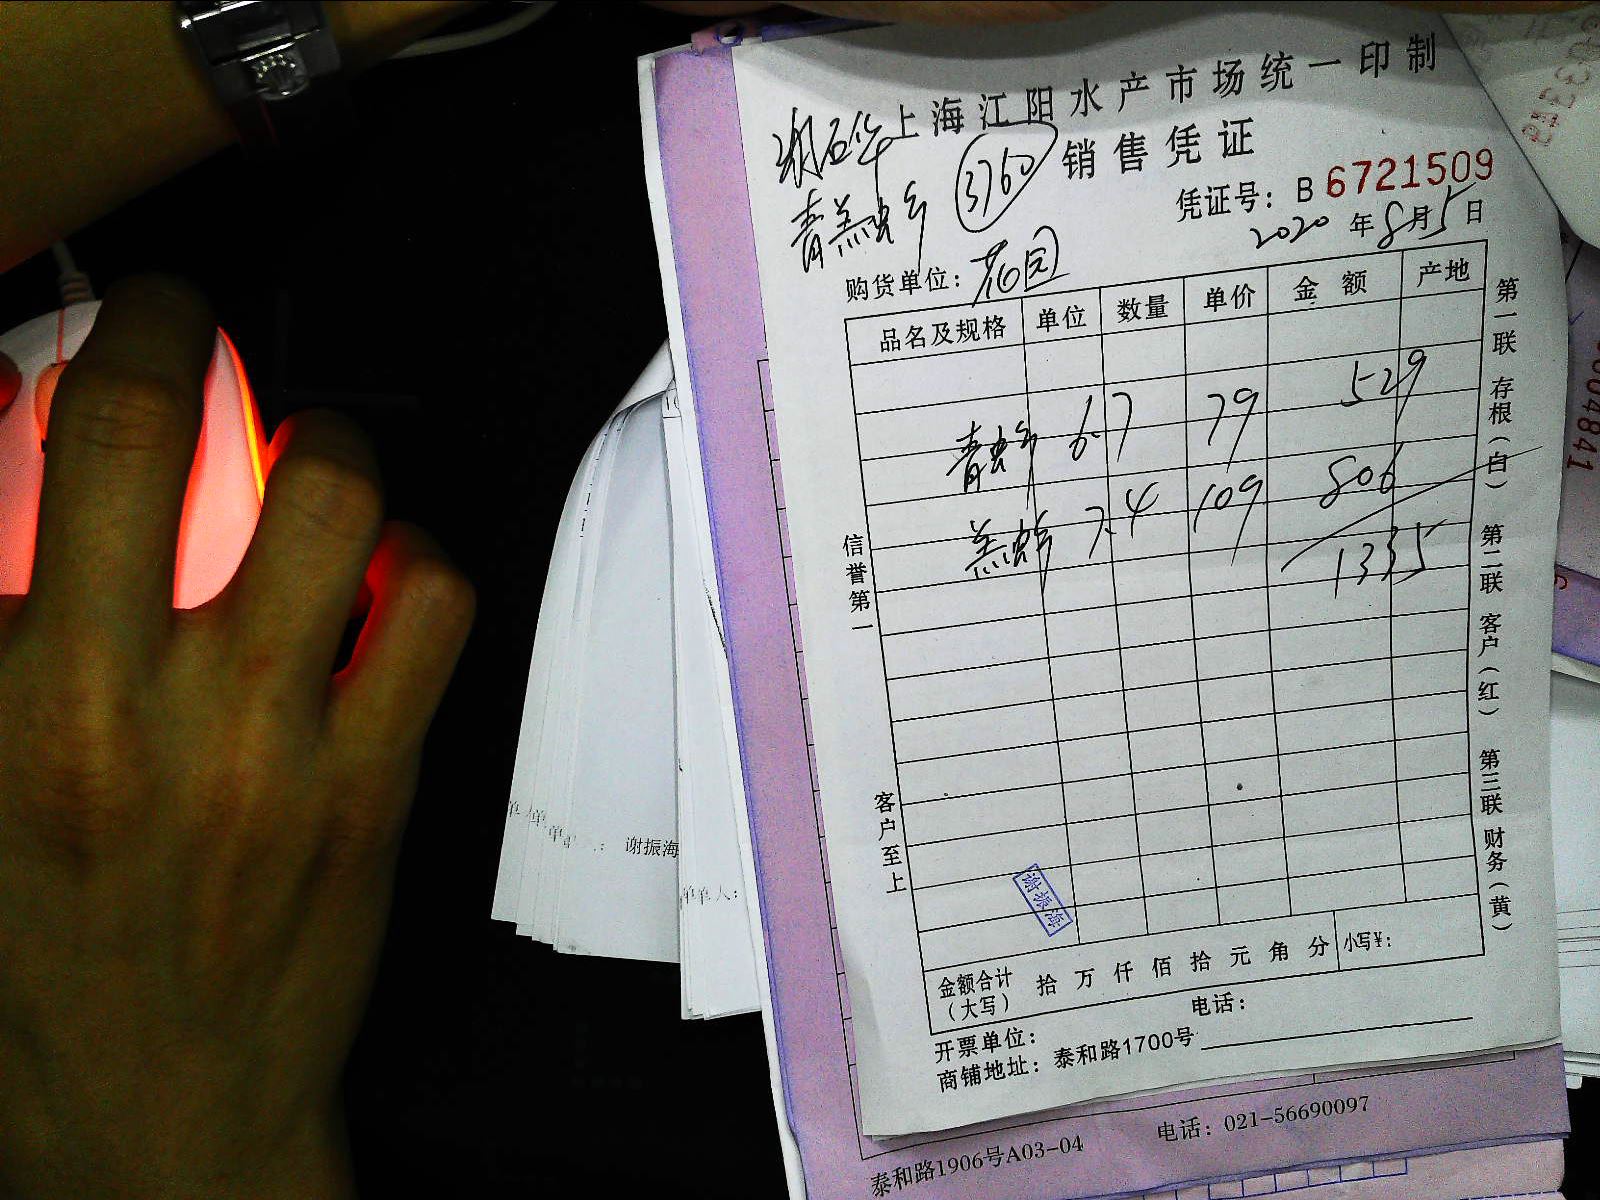 上海江阳水产市场统一印制
销售凭证
3760
凭证号：B 6721509
2020年8月5日
购货单位：花园
品名及规格 单位 数量 单价 金额 产地
6.7 79 529
7.4 109 806
1335
信誉第一
客户至上
第一联 存根（白） 第二联 客户（红） 第三联 财务（黄）
谢振海
金额合计（大写） 拾 万 仟 佰 拾 元 角 分 小写¥：
开票单位： 电话：
商铺地址：泰和路1700号
泰和路1906号A03-04 电话：021-56690097
谢振海
单人：